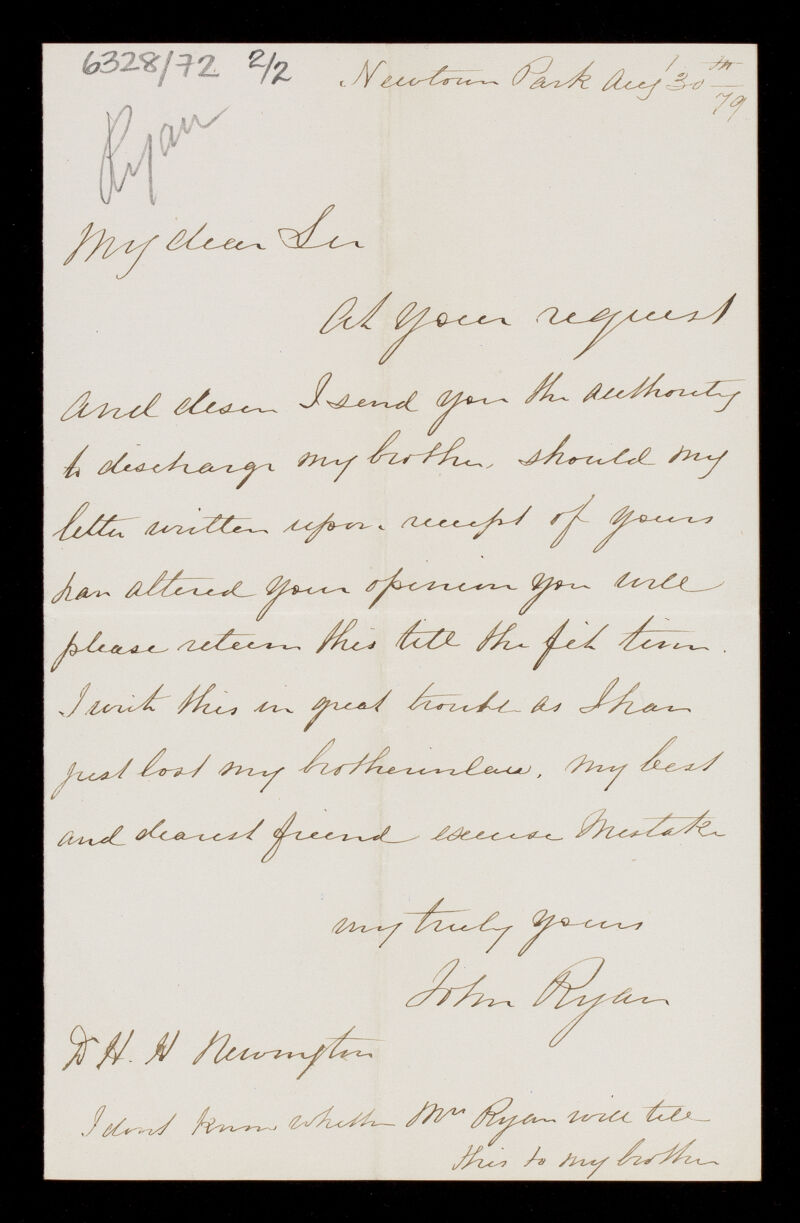 6328/72 2/2
Newtown Park Augt 30th
79
Ryan
My dear Sir
At your request
and desire I send you the authority
to discharge my brother, should my
letter written upon receipt of yours
have altered your opinion you will
please return this till the fit time.
I write this in great trouble as I have
just lost my brotherinlaw, my best
and dearest friend excuse mistake
truly yours
John Ryan
Dr H. H Newington
I dont know whether Mrs Ryan will tell
this to my brother